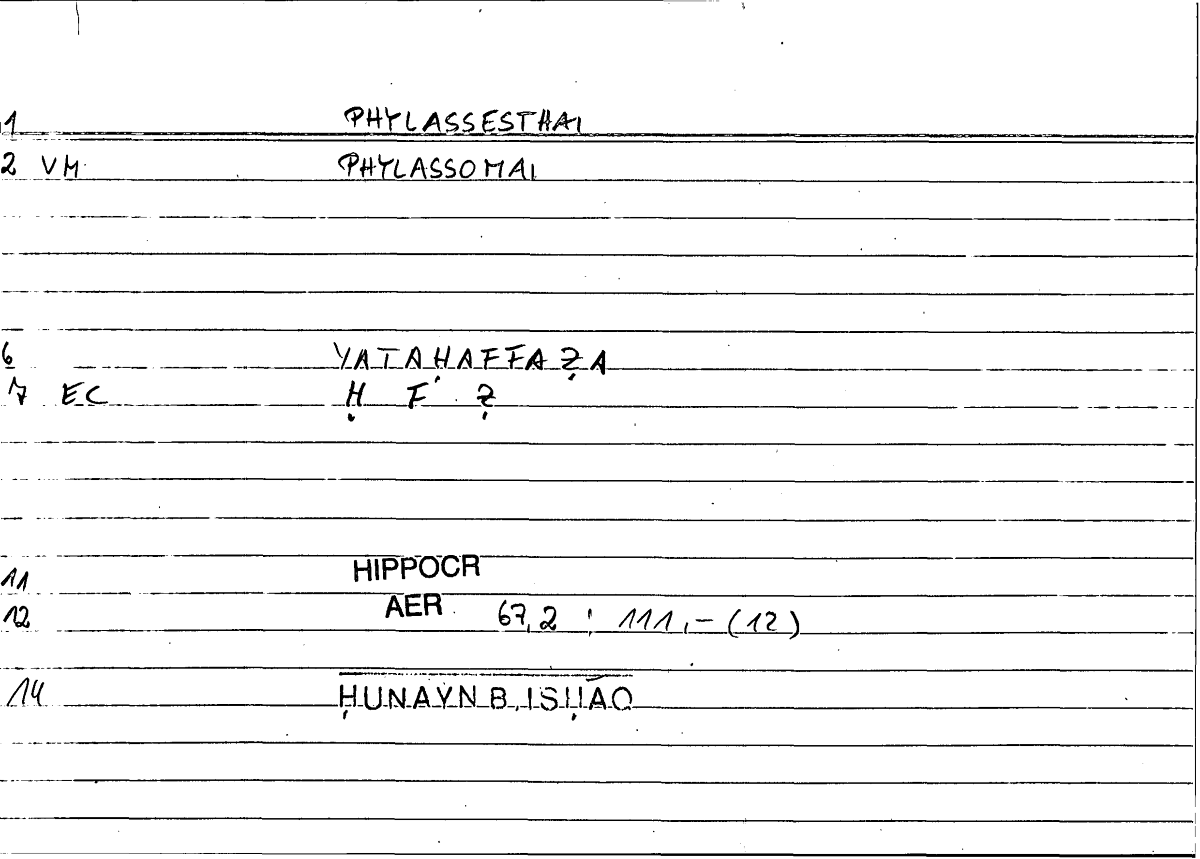 1 PHYLASSESTHAI
2 VM PHYLASSOMAI
6 YATAḤAFFAẒA
7 EC Ḥ F Ẓ
11 HIPPOCR
12 AER 67,2 : 111,-(12)
14 ḤUNAYN B. ISḤĀQ